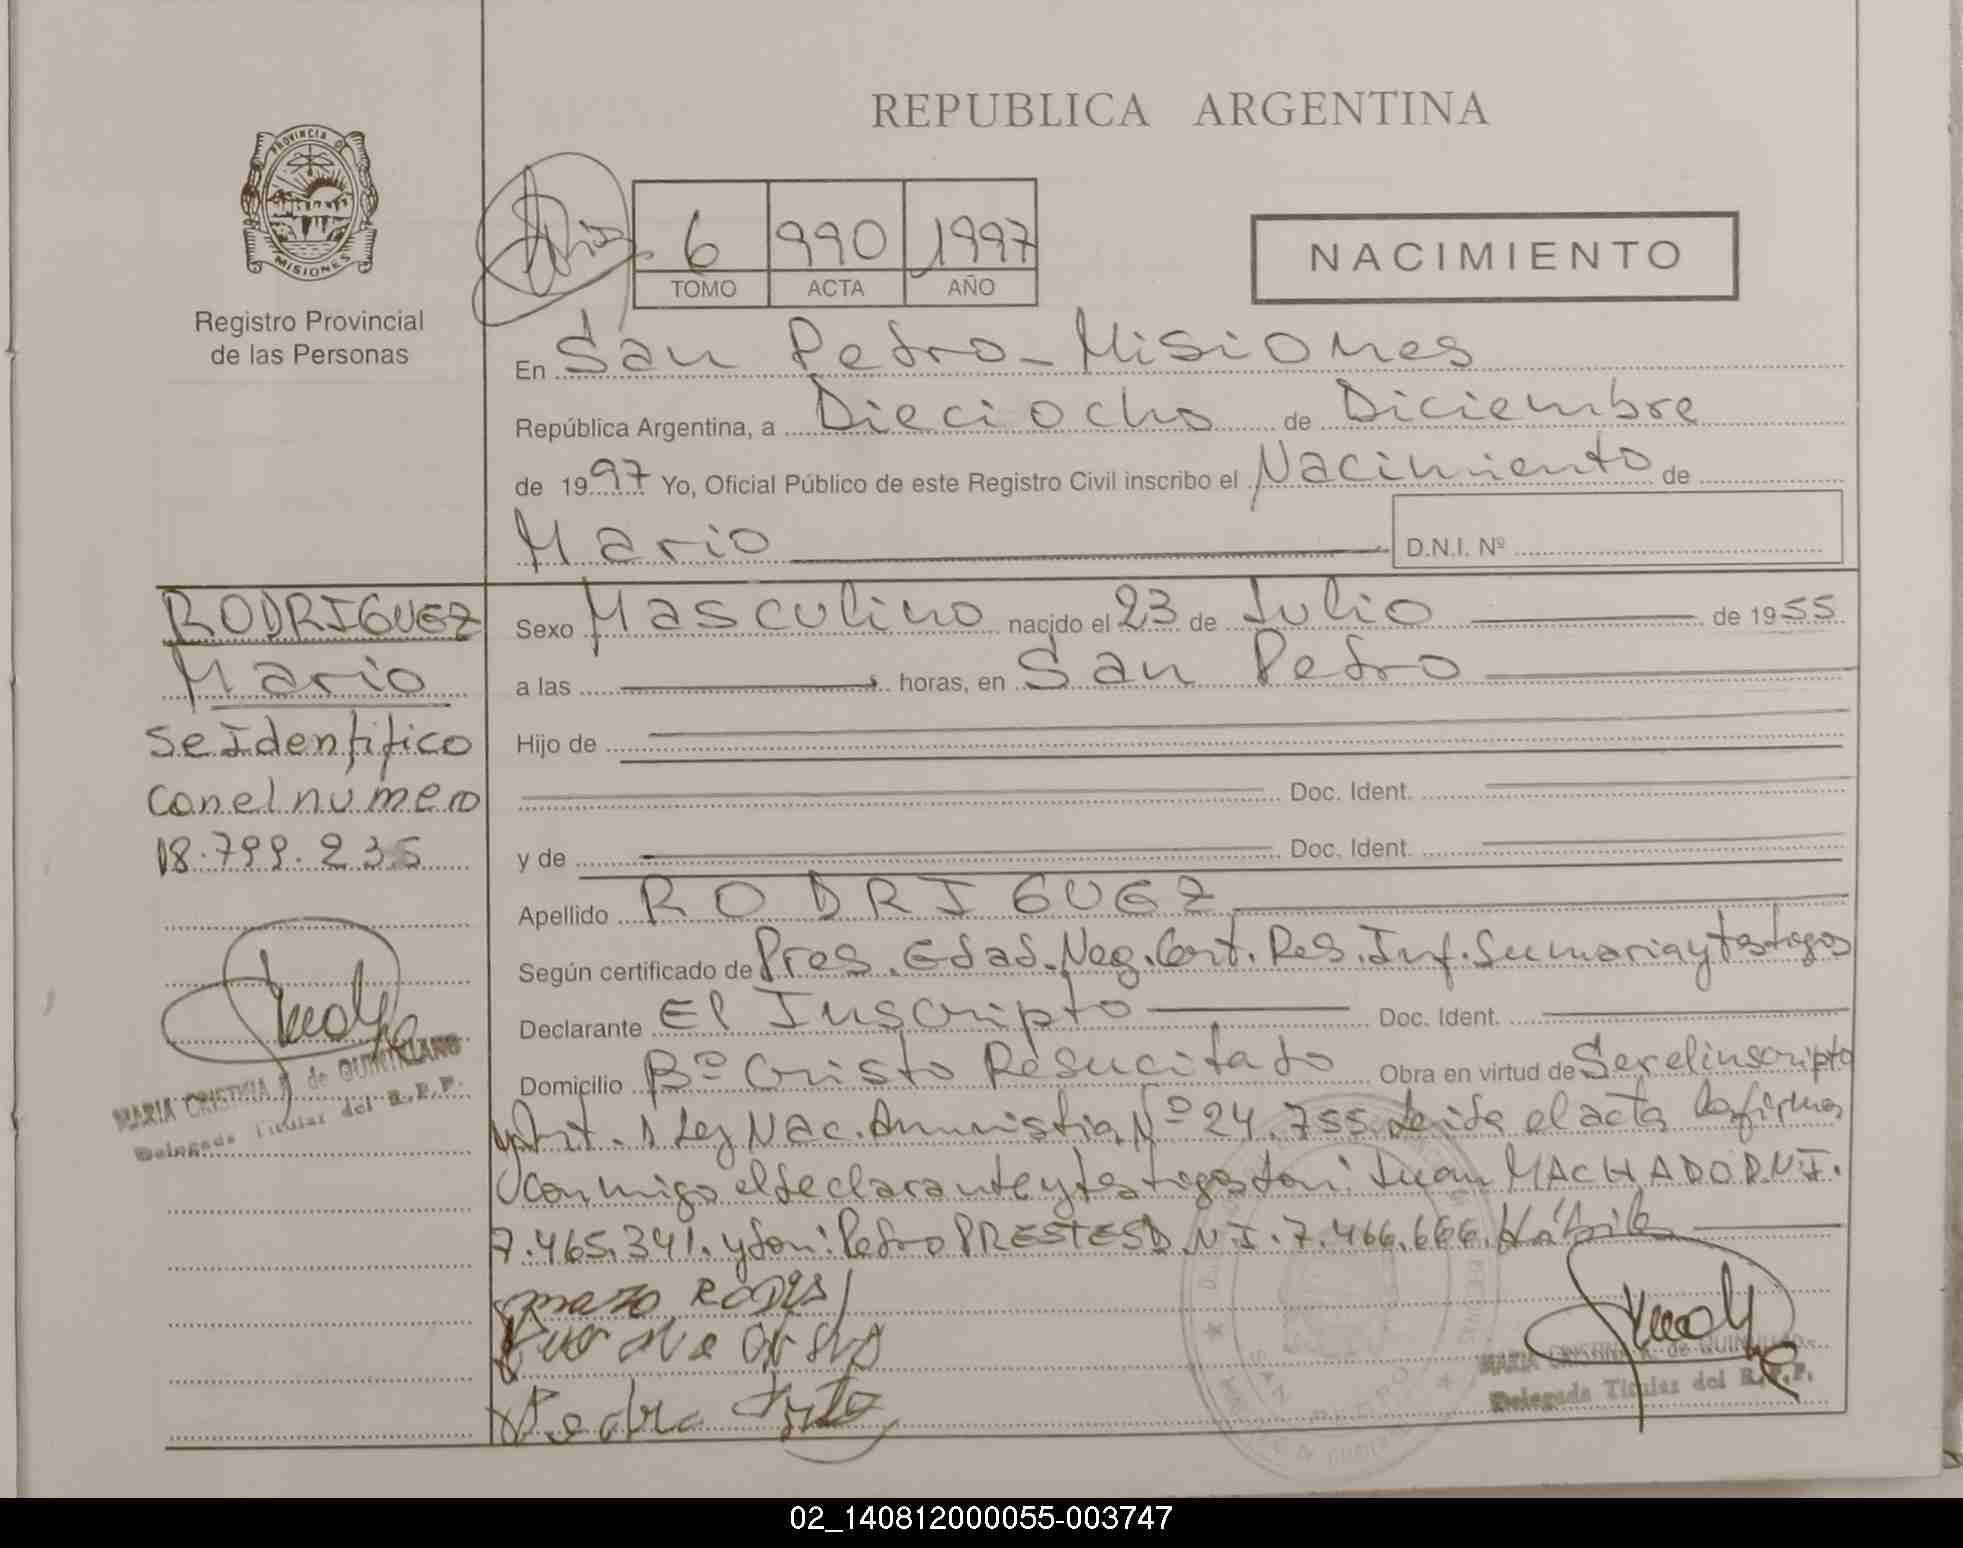 REPUBLICA ARGENTINA
PROVINCIA DE
MISIONES
Registro Provincial
de las Personas
6 990 1997
TOMO ACTA AÑO
NACIMIENTO
En San Pedro - Misiones
República Argentina, a Dieciocho de Diciembre
de 1997 Yo, Oficial Público de este Registro Civil inscribo el Nacimiento de
Mario
D.N.I. Nº
RODRIGUEZ
Mario
se Identifico
con el numero
18.799.235
MARIA CRISTINA de QUINTILIANO
Delegada Titular del R.P.P.
Sexo Masculino nacido el 23 de Julio de 1955
a las horas, en San Pedro
Hijo de
Doc. Ident.
y de Doc. Ident.
Apellido RODRIGUEZ
Según certificado de Pres. Edad. Neg. Cert. Res. Inf. Sumaria y testigos
Declarante El Inscripto Doc. Ident.
Domicilio Bº Cristo Resucitado Obra en virtud de Ser el inscripto
y Art. 1 Ley Nac. Amnistia Nº 24.755. Leida el acta la firman
conmigo el declarante y testigos don: Juan MACHADO D.N.I.
7.465.341. y don: Pedro PRESTES D.N.I. 7.466.666. Hábiles
MARIA CRISTINA de
Delegada Titular del R.P.P.
SAN PEDRO
02_140812000055-003747